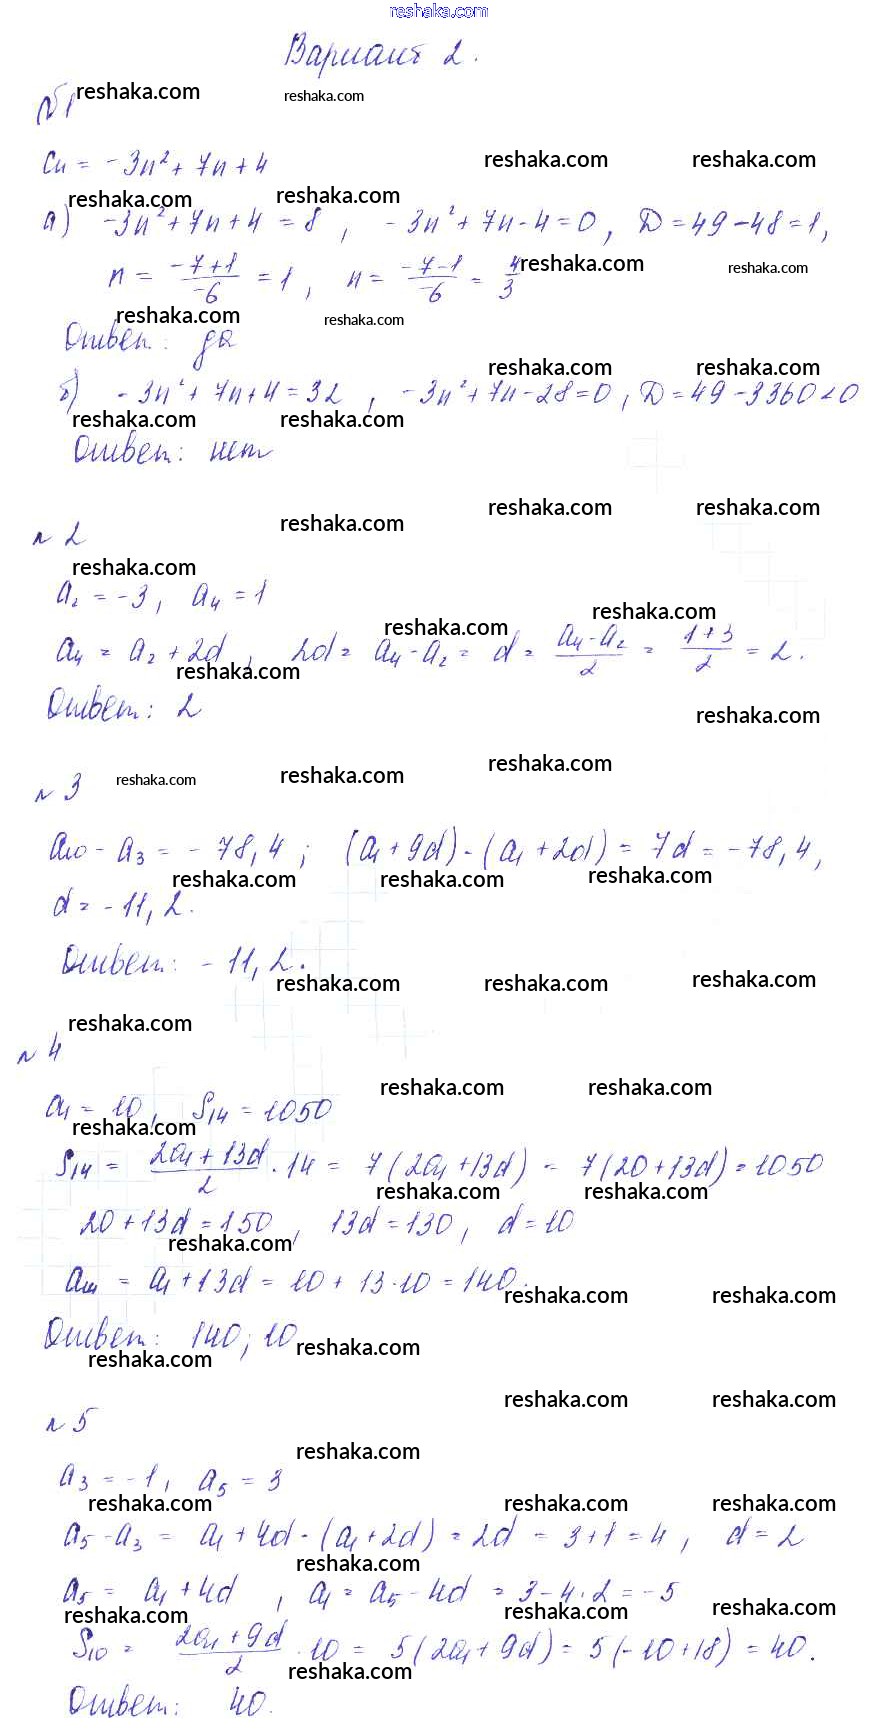 reshaka.com
Вариант 2.
reshaka.com reshaka.com
№1
Cn = -3n² + 7n + 4 reshaka.com reshaka.com
reshaka.com reshaka.com
а) -3n² + 7n + 4 = 8, -3n² + 7n - 4 = 0, D = 49 - 48 = 1,
n = (-7+1)/(-6) = 1, n = (-7-1)/(-6) = 4/3 reshaka.com reshaka.com
reshaka.com reshaka.com
Ответ: да
reshaka.com reshaka.com
б) -3n² + 7n + 4 = 32, -3n² + 7n - 28 = 0, D = 49 - 3360 < 0
reshaka.com reshaka.com
Ответ: нет
reshaka.com reshaka.com
№ 2 reshaka.com
reshaka.com
a₂ = -3, a₄ = 1
reshaka.com reshaka.com
a₄ = a₂ + 2d, 2d = a₄ - a₂ = d = (a₄ - a₂)/2 = (1+3)/2 = 2.
reshaka.com
Ответ: 2 reshaka.com
№ 3 reshaka.com reshaka.com reshaka.com
a₁₀ - a₃ = -78,4; (a₁ + 9d) - (a₁ + 2d) = 7d = -78,4,
reshaka.com reshaka.com reshaka.com
d = -11,2.
Ответ: -11,2.
reshaka.com reshaka.com reshaka.com
reshaka.com
№ 4
reshaka.com reshaka.com
a₁ = 10, S₁₄ = 1050
reshaka.com
S₁₄ = (2a₁ + 13d)/2 · 14 = 7(2a₁ + 13d) = 7(20 + 13d) = 1050
reshaka.com reshaka.com
20 + 13d = 150, 13d = 130, d = 10
reshaka.com
a₁₄ = a₁ + 13d = 10 + 13·10 = 140.
reshaka.com reshaka.com
Ответ: 140; 10 reshaka.com
reshaka.com
reshaka.com reshaka.com
№ 5
reshaka.com
a₃ = -1, a₅ = 3
reshaka.com reshaka.com reshaka.com
a₅ - a₃ = a₁ + 4d - (a₁ + 2d) = 2d = 3 + 1 = 4, d = 2
reshaka.com
a₅ = a₁ + 4d, a₁ = a₅ - 4d = 3 - 4·2 = -5
reshaka.com reshaka.com reshaka.com
S₁₀ = (2a₁ + 9d)/2 · 10 = 5(2a₁ + 9d) = 5(-10 + 18) = 40.
reshaka.com
Ответ: 40.